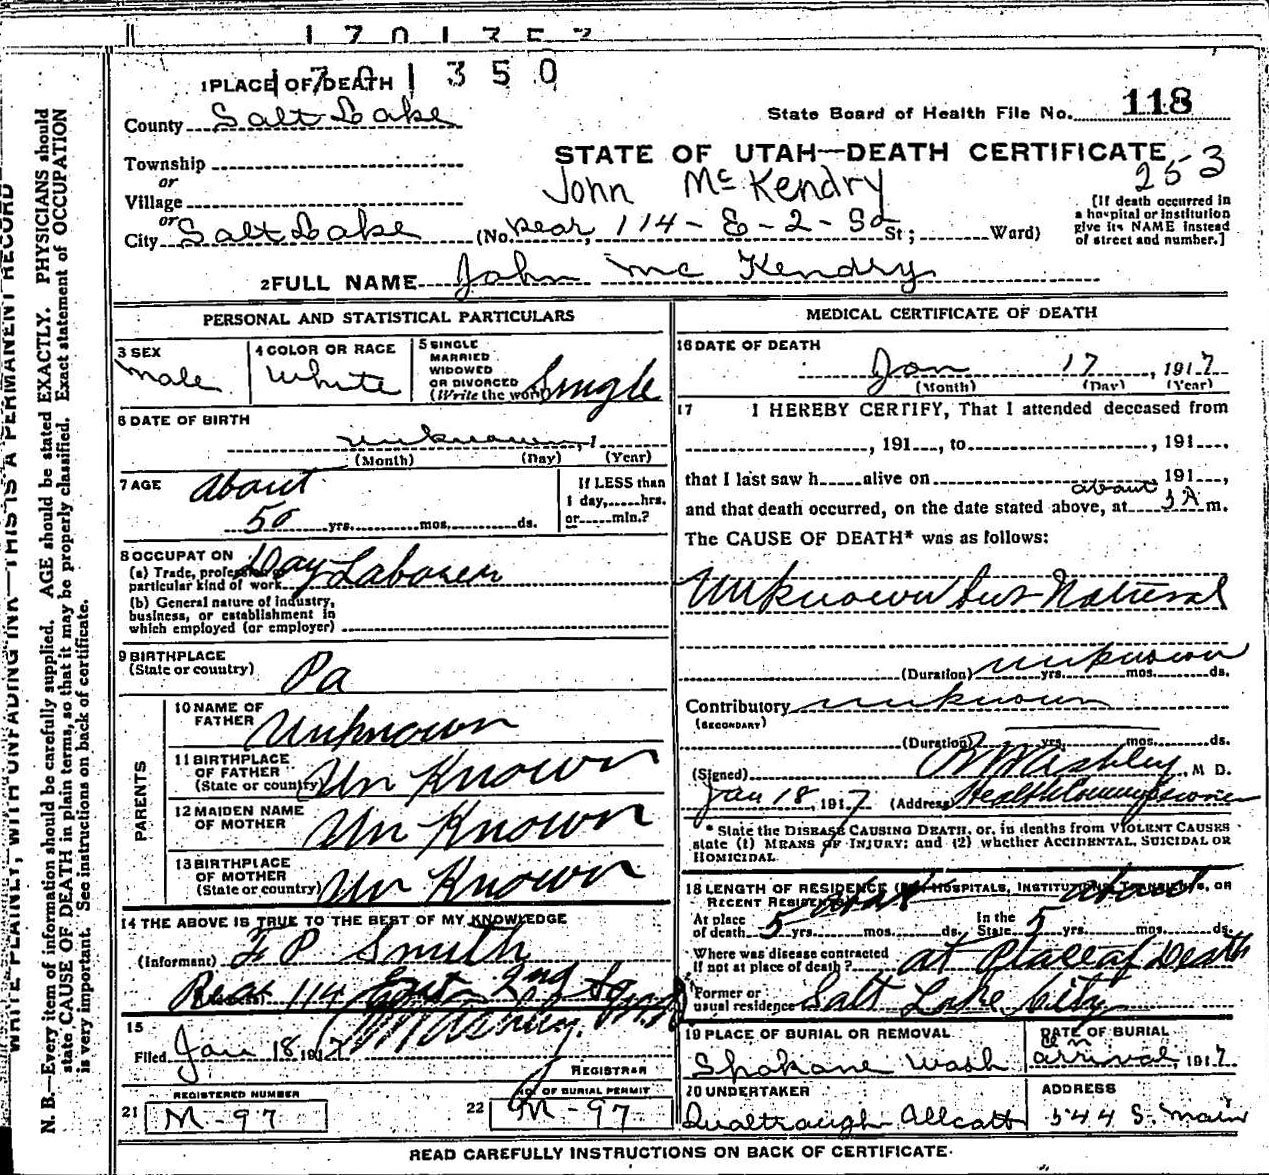 1701350
1 PLACE OF DEATH
County Salt Lake
State Board of Health File No. 118
Township
or
Village
or
City Salt Lake
STATE OF UTAH—DEATH CERTIFICATE
John McKendry
253
(No. Rear 114 - E - 2 - So St; Ward)
[If death occurred in
a hospital or institution
give its NAME instead
of street and number.]
2 FULL NAME John Mc Kendry
PERSONAL AND STATISTICAL PARTICULARS
3 SEX
Male
4 COLOR OR RACE
White
5 SINGLE
MARRIED
WIDOWED
OR DIVORCED
(Write the word)
Single
6 DATE OF BIRTH
unknown, 1
(Month) (Day) (Year)
7 AGE
About
50 yrs. mos. ds.
If LESS than
1 day, hrs.
or min.?
8 OCCUPATION
Day Laborer
(a) Trade, profession
particular kind of work
(b) General nature of industry,
business, or establishment in
which employed (or employer)
9 BIRTHPLACE
(State or country)
Pa
PARENTS
10 NAME OF
FATHER
Unknown
11 BIRTHPLACE
OF FATHER
(State or country)
Un Known
12 MAIDEN NAME
OF MOTHER
Un Known
13 BIRTHPLACE
OF MOTHER
(State or country)
Un Known
14 THE ABOVE IS TRUE TO THE BEST OF MY KNOWLEDGE
(Informant) F P Smith
Rear 114 East 2nd So
15
Filed Jan 18 1917
REGISTRAR
REGISTERED NUMBER
21 M-97
NO. OF BURIAL PERMIT
22 M-97
MEDICAL CERTIFICATE OF DEATH
16 DATE OF DEATH
Jan 17, 1917
(Month) (Day) (Year)
17 I HEREBY CERTIFY, That I attended deceased from
, 191 , to , 191
that I last saw h alive on , 191 ,
and that death occurred, on the date stated above, at about 3 A m.
The CAUSE OF DEATH* was as follows:
Unknown but Natural
(Duration) unknown yrs. mos. ds.
Contributory unknown
(SECONDARY)
(Duration) yrs. mos. ds.
(Signed) Ashley, M D.
Jan 18, 1917 (Address) Health Commissioner
* State the DISEASE CAUSING DEATH, or, in deaths from VIOLENT CAUSES
state (1) MEANS OF INJURY; and (2) whether ACCIDENTAL, SUICIDAL OR
HOMICIDAL
18 LENGTH OF RESIDENCE (FOR HOSPITALS, INSTITUTIONS, TRANSIENTS, OR
RECENT RESIDENTS)
about about
At place
of death 5 yrs. mos. ds. In the
State 5 yrs. mos. ds.
Where was disease contracted
if not at place of death? at Place of Death
Former or
usual residence Salt Lake City
19 PLACE OF BURIAL OR REMOVAL
Spokane Wash
DATE OF BURIAL
on
arrival, 1917
20 UNDERTAKER
Allcott
ADDRESS
544 S. Main
READ CAREFULLY INSTRUCTIONS ON BACK OF CERTIFICATE.
WRITE PLAINLY, WITH UNFADING INK—THIS IS A PERMANENT RECORD
N. B.—Every item of information should be carefully supplied. AGE should be stated EXACTLY. PHYSICIANS should
state CAUSE OF DEATH in plain terms, so that it may be properly classified. Exact statement of OCCUPATION
is very important. See instructions on back of certificate.